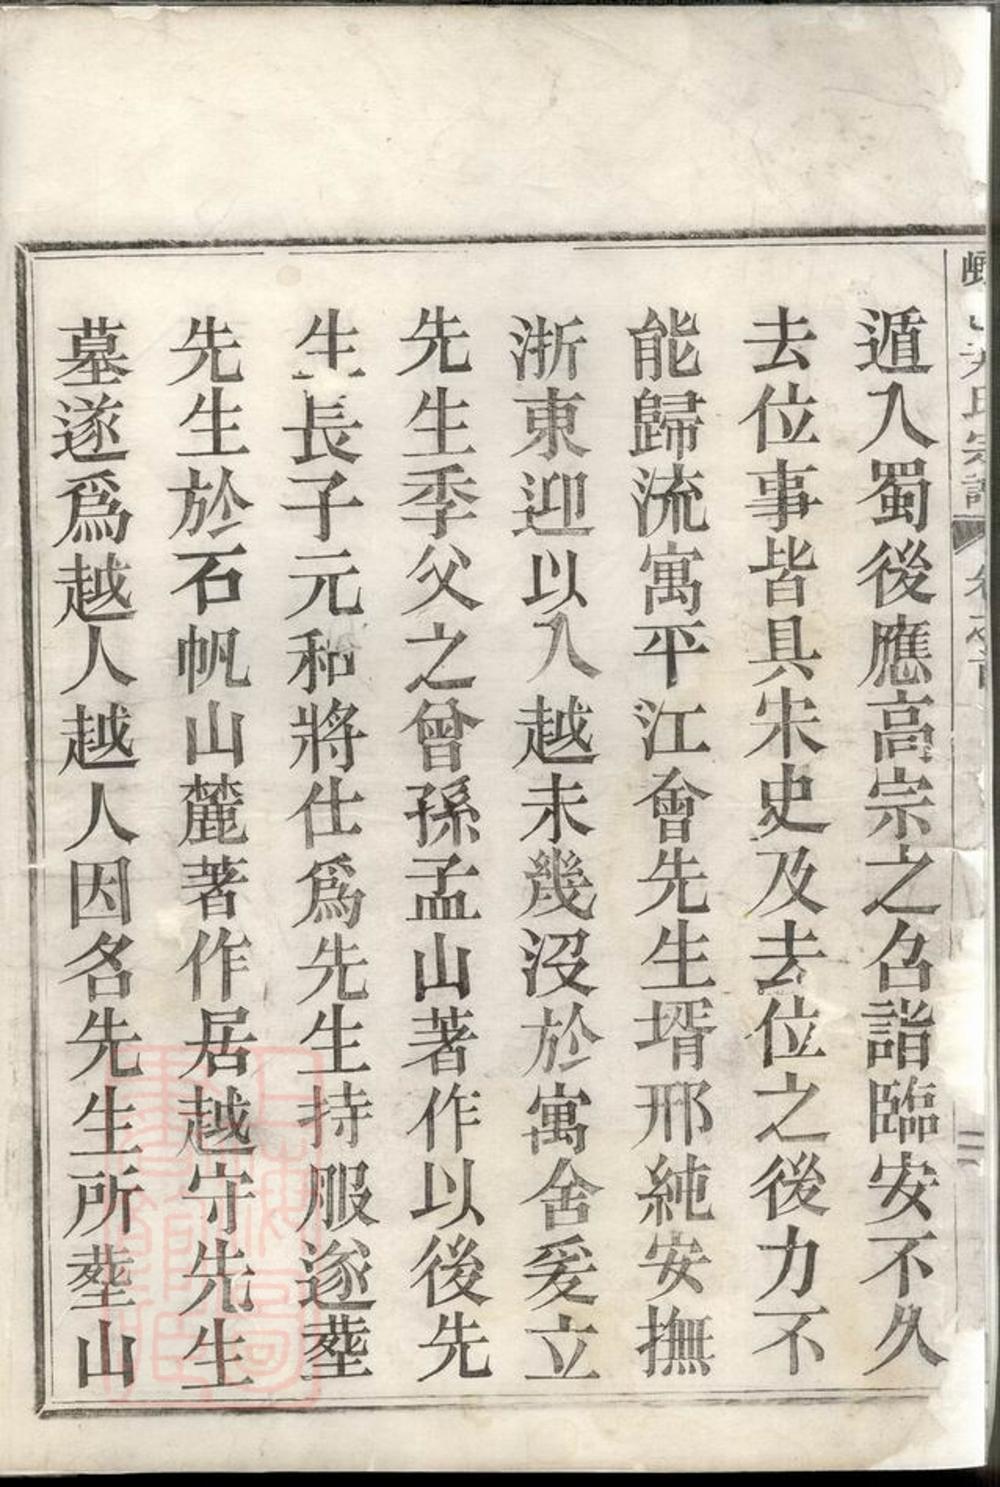 尹氏宗譜
遁入蜀後應高宗之召詣臨安不久
去位事皆具宋史及去位之後力不
能歸流寓平江會先生壻邢純安撫
浙東迎以入越未幾沒於寓舍爰立
先生季父之曾孫孟山著作以後先
生長子元和將仕爲先生持服遂塟
先生於石帆山麓著作居越守先生
墓遂爲越人越人因名先生所塟山